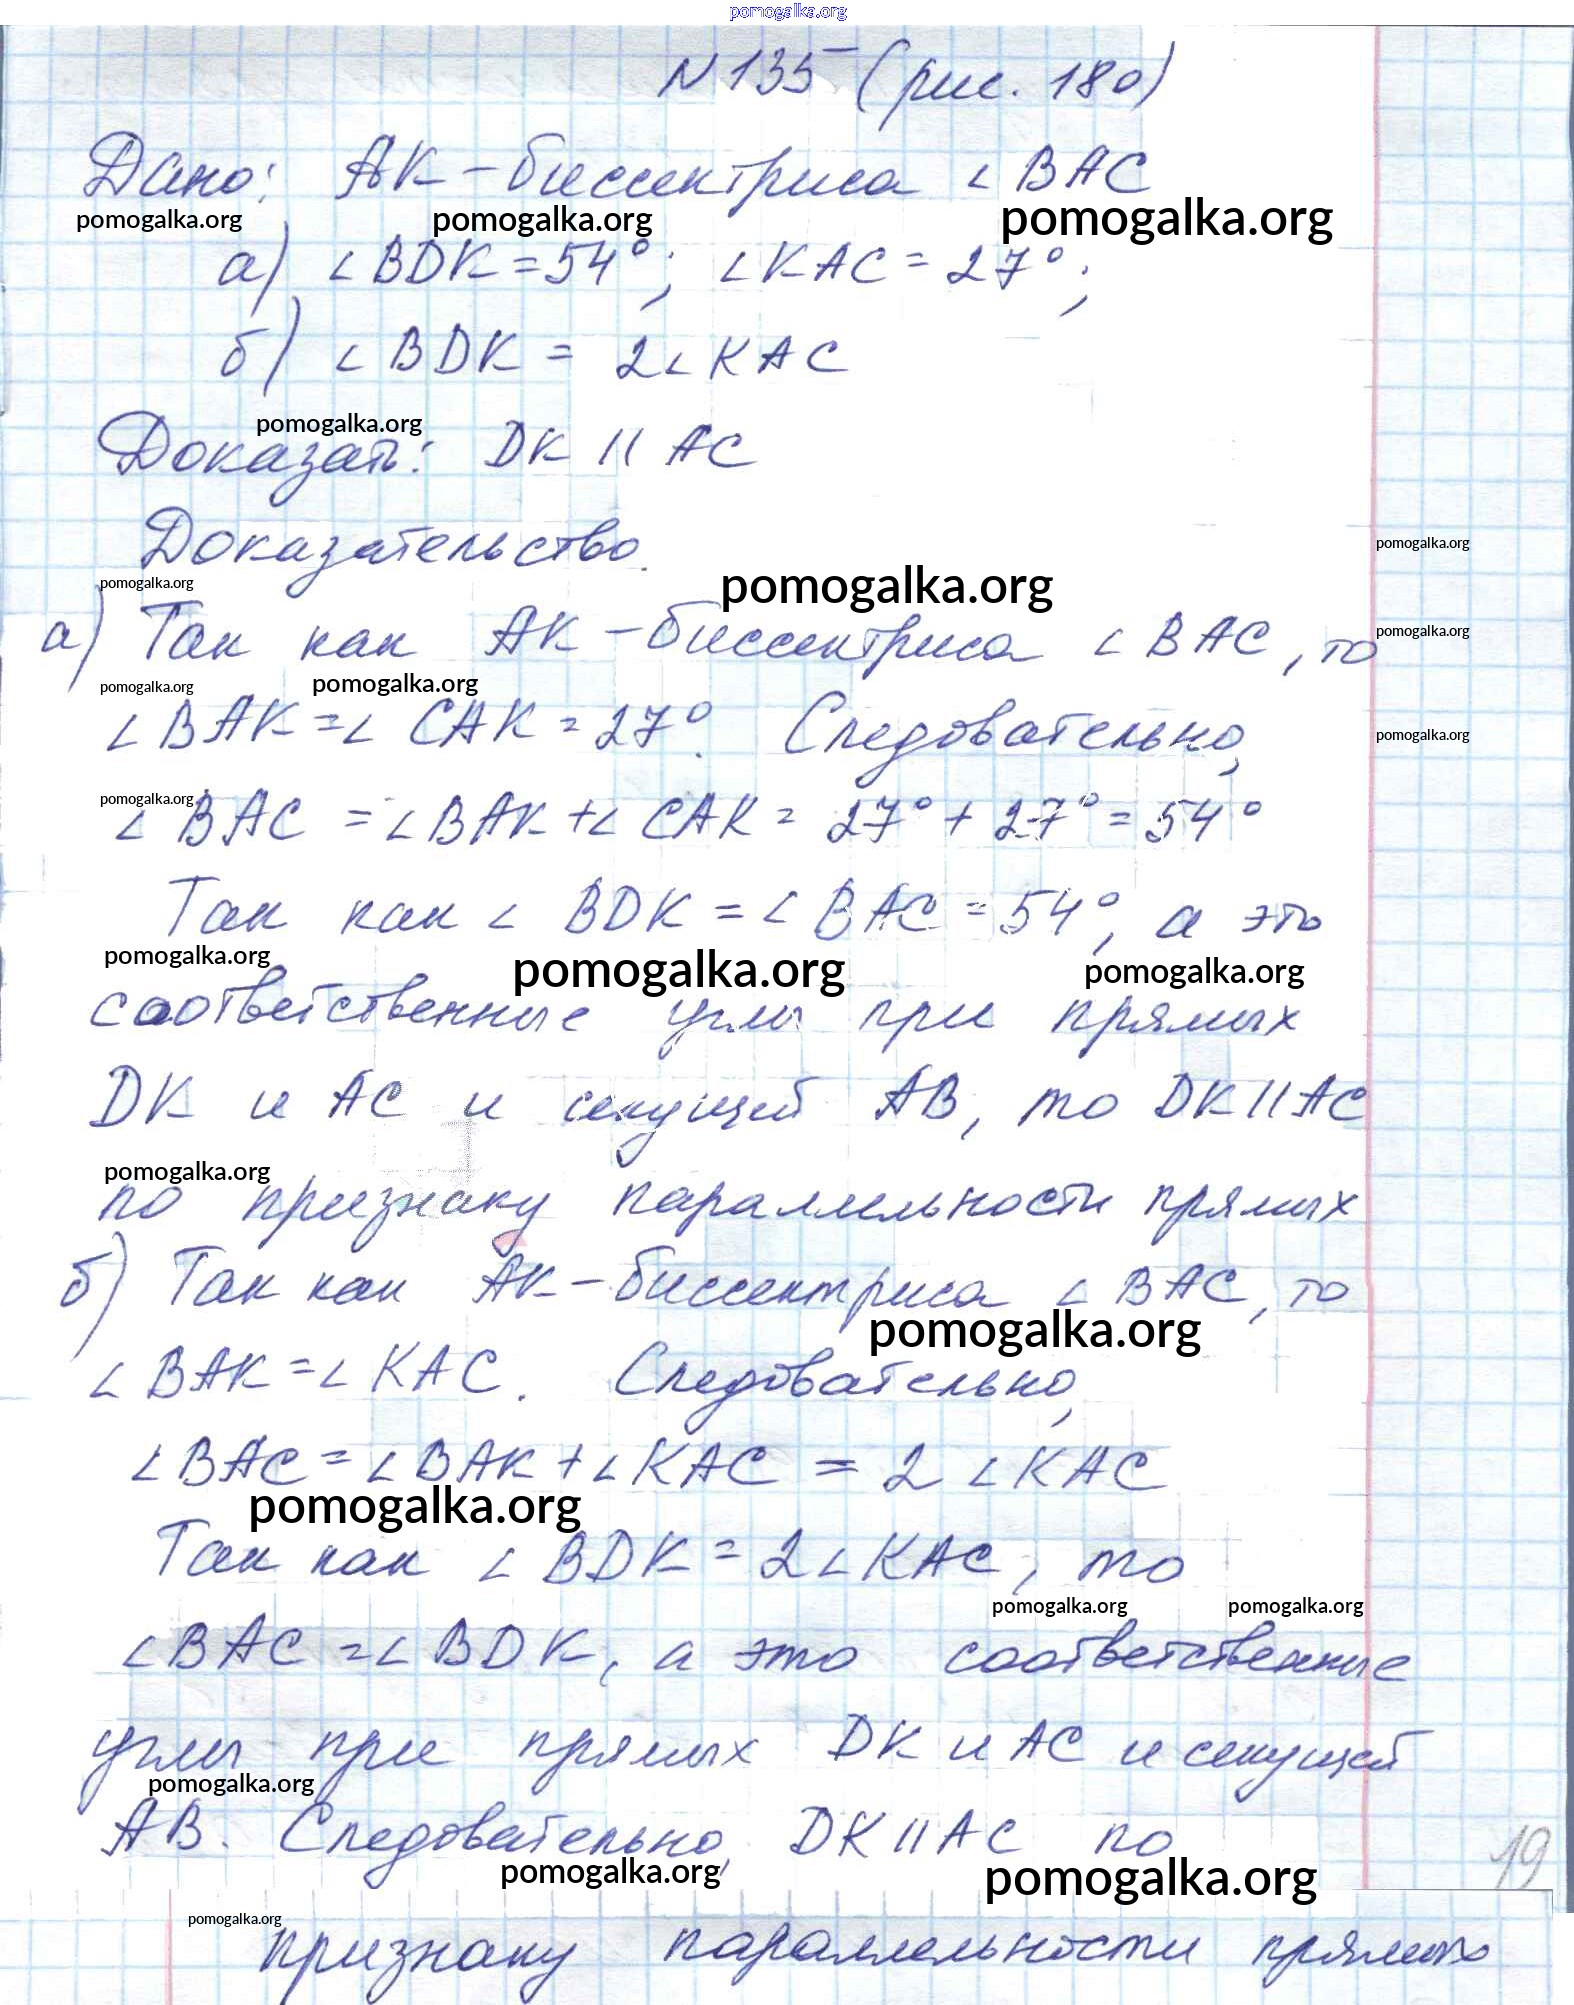 pomogalka.org
N135 (рис. 180)
Дано: АК - биссектриса ∠ВАС
pomogalka.org pomogalka.org pomogalka.org
а) ∠BDK = 54°; ∠KAC = 27°;
б) ∠BDK = 2∠KAC
pomogalka.org
Доказать: DK || AC
Доказательство.
pomogalka.org
pomogalka.org pomogalka.org
а) Так как АК - биссектриса ∠ВАС, то
pomogalka.org
pomogalka.org pomogalka.org
∠BAK = ∠CAK = 27°. Следовательно,
pomogalka.org
pomogalka.org
∠BAC = ∠BAK + ∠CAK = 27° + 27° = 54°
Так как ∠BDK = ∠BAC = 54°, а это
pomogalka.org pomogalka.org pomogalka.org
соответственные углы при прямых
DK и AC и секущей AB, то DK || AC
pomogalka.org
по признаку параллельности прямых
б) Так как АК - биссектриса ∠ВАС, то
pomogalka.org
∠BAK = ∠KAC. Следовательно,
∠BAC = ∠BAK + ∠KAC = 2∠KAC
pomogalka.org
Так как ∠BDK = 2∠KAC, то
pomogalka.org pomogalka.org
∠BAC = ∠BDK, а это соответственные
углы при прямых DK и AC и секущей
pomogalka.org
AB. Следовательно, DK || AC по
19
pomogalka.org pomogalka.org
pomogalka.org
признаку параллельности прямых